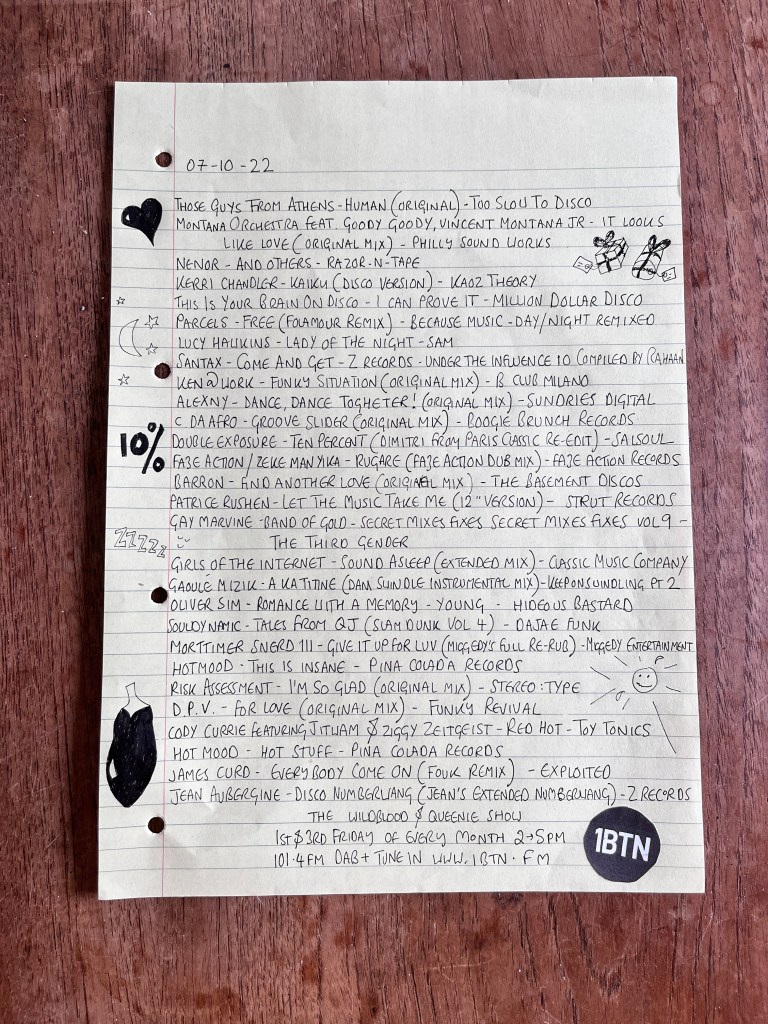 07-10-22
THOSE GUYS FROM ATHENS - HUMAN (ORIGINAL) - TOO SLOW TO DISCO
MONTANA ORCHESTRA FEAT. GOODY GOODY, VINCENT MONTANA JR - IT LOOKS
LIKE LOVE (ORIGINAL MIX) - PHILLY SOUND WORKS
NENOR - AND OTHERS - RAZOR-N-TAPE
KERRI CHANDLER - KAIKU (DISCO VERSION) - KAOZ THEORY
THIS IS YOUR BRAIN ON DISCO - I CAN PROVE IT - MILLION DOLLAR DISCO
PARCELS - FREE (FOLAMOUR REMIX) - BECAUSE MUSIC - DAY/NIGHT REMIXED
LUCY HAWKINS - LADY OF THE NIGHT - SAM
SANTAX - COME AND GET - Z RECORDS - UNDER THE INFLUENCE 10 COMPILED BY RAHAAN
KEN@WORK - FUNKY SITUATION (ORIGINAL MIX) - B CLUB MILANO
ALEXNY - DANCE, DANCE TOGHETER! (ORIGINAL MIX) - SUNDRIES DIGITAL
C DA AFRO - GROOVE SLIDER (ORIGINAL MIX) - BOOGIE BRUNCH RECORDS
10%
DOUBLE EXPOSURE - TEN PERCENT (DIMITRI FROM PARIS CLASSIC RE-EDIT) - SALSOUL
FAZE ACTION / ZEKE MANYIKA - RUGARE (FAZE ACTION DUB MIX) - FAZE ACTION RECORDS
BARRON - AND ANOTHER LOVE (ORIGINAL MIX) - THE BASEMENT DISCOS
PATRICE RUSHEN - LET THE MUSIC TAKE ME (12" VERSION) - STRUT RECORDS
GAY MARVINE - BAND OF GOLD - SECRET MIXES FIXES SECRET MIXES FIXES VOL 9 -
THE THIRD GENDER
ZZZZZ
GIRLS OF THE INTERNET - SOUND ASLEEP (EXTENDED MIX) - CLASSIC MUSIC COMPANY
GAOULÉ MIZIK - A KA TITINE (DAM SWINDLE INSTRUMENTAL MIX) - KEEPONSWINDLING PT 2
OLIVER SIM - ROMANCE WITH A MEMORY - YOUNG - HIDEOUS BASTARD
SOULDYNAMIC - TALES FROM QJ (SLAM DUNK VOL 4) - DAJAE FUNK
MORTTIMER SNERD III - GIVE IT UP FOR LUV (MIGGEDY'S FULL RE-RUB) - MIGGEDY ENTERTAINMENT
HOTMOOD - THIS IS INSANE - PINA COLADA RECORDS
RISK ASSESSMENT - I'M SO GLAD (ORIGINAL MIX) - STEREO:TYPE
D.P.V. - FOR LOVE (ORIGINAL MIX) - FUNKY REVIVAL
CODY CURRIE FEATURING JITWAM & ZIGGY ZEITGEIST - RED HOT - TOY TONICS
HOT MOOD - HOT STUFF - PINA COLADA RECORDS
JAMES CURD - EVERYBODY COME ON (FOUK REMIX) - EXPLOITED
JEAN AUBERGINE - DISCO NUMBERWANG (JEAN'S EXTENDED NUMBERWANG) - Z RECORDS
THE WILDBLOOD & QUEENIE SHOW
1ST & 3RD FRIDAY OF EVERY MONTH 2→5PM
101.4FM DAB+ TUNE IN WWW.1BTN.FM
1BTN